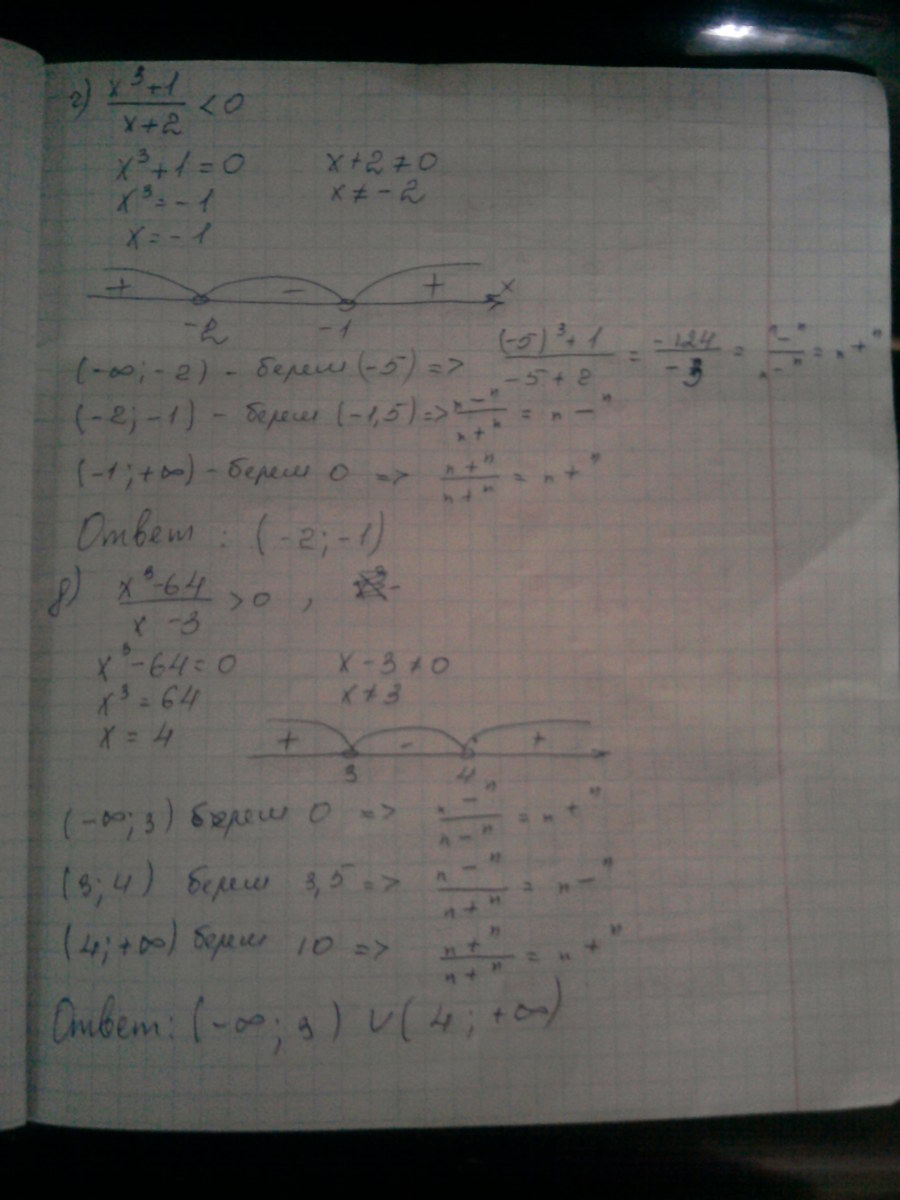 г) (x³+1)/(x+2) < 0
x³+1=0 x+2≠0
x³=-1 x≠-2
x=-1
+ - + x
-2 -1
(-∞;-2) - берем (-5) => ((-5)³+1)/(-5+2) = -124/-3 = "-"/"-" = "+"
(-2;-1) - берем (-1,5) => "-"/"+" = "-"
(-1;+∞) - берем 0 => "+"/"+" = "+"
Ответ: (-2;-1)
(x³-64)/(x-3) >0 ,
x³-64=0 x-3≠0
x³=64 x≠3
x=4
+ - +
3 4
(-∞;3) берем 0 => "-"/"-" = "+"
(3;4) берем 3,5 => "-"/"+" = "-"
(4;+∞) берем 10 => "+"/"+" = "+"
Ответ: (-∞;3) ∪ (4;+∞)